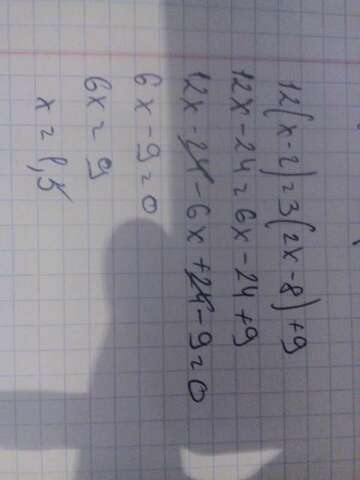 12(x-2)=3(2x-8)+9
12x-24=6x-24+9
12x-24-6x+24-9=0
6x-9=0
6x=9
x=1,5